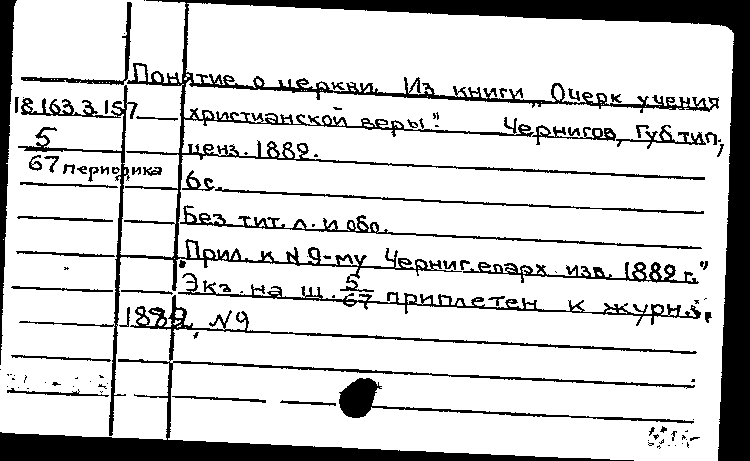 Понятие о церкви. Из книги „Очерк учения
18.163.3.157 христианской веры". Чернигов, Губ.тип.,
5/67 периодика
ценз. 1889.
6 с.
Без тит. л. и обл.
"Прил. к N 9-му Черниг. епарх. изв. 1889 г."
Экз. на ш. 5/67 приплетен к журн.:
1889, N9